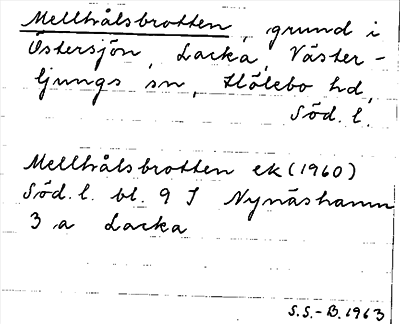 Mellhålsbrotten, grund i
Östersjön, Lacka, Väster-
ljungs sn, Hölebo hd,
Söd. l.
Mellhålsbrotten ek (1960)
Söd. l. bl. 9 I Nynäshamn
3 a Lacka
S.S.-B. 1963